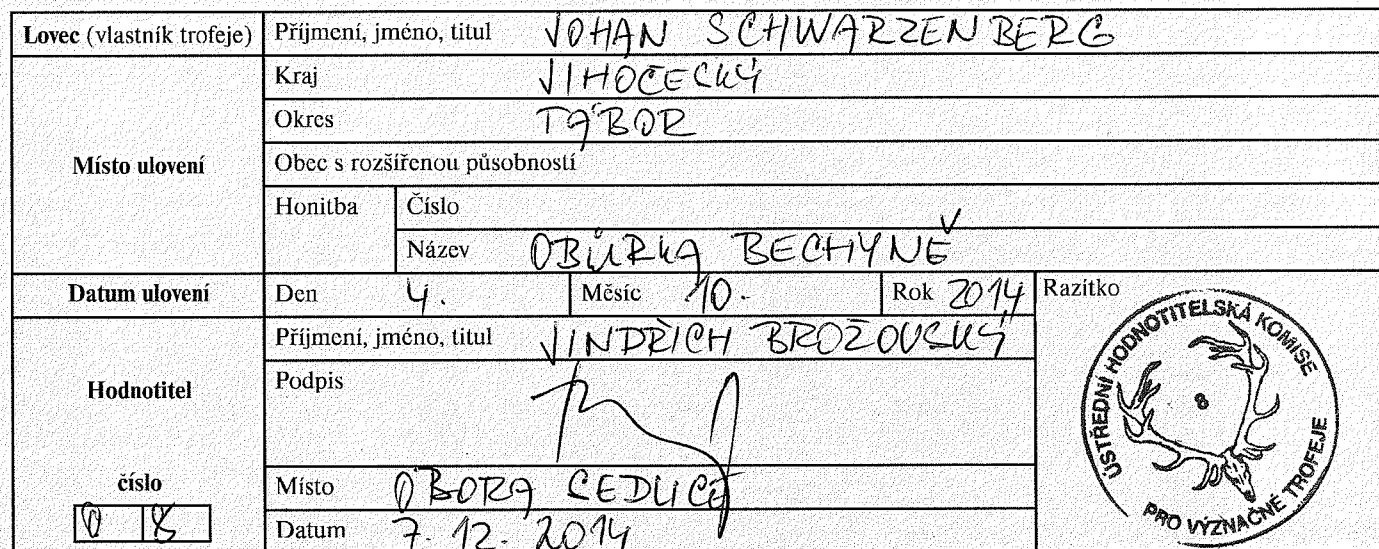 Lovec (vlastník trofeje) Příjmení, jméno, titul JOHAN SCHWARZENBERG
Místo ulovení
Kraj JIHOČESKÝ
Okres TÁBOR
Obec s rozšířenou působností
Honitba Číslo
Název OBŮRKA BECHYNĚ
Datum ulovení Den 4. Měsíc 10. Rok 2014 Razítko
Hodnotitel
Příjmení, jméno, titul JINDŘICH BROŽOVSKÝ
Podpis
číslo
08
Místo OBORA SEDLICE
Datum 7. 12. 2014
ÚSTŘEDNÍ HODNOTITELSKÁ KOMISE
8
PRO VÝZNAČNÉ TROFEJE